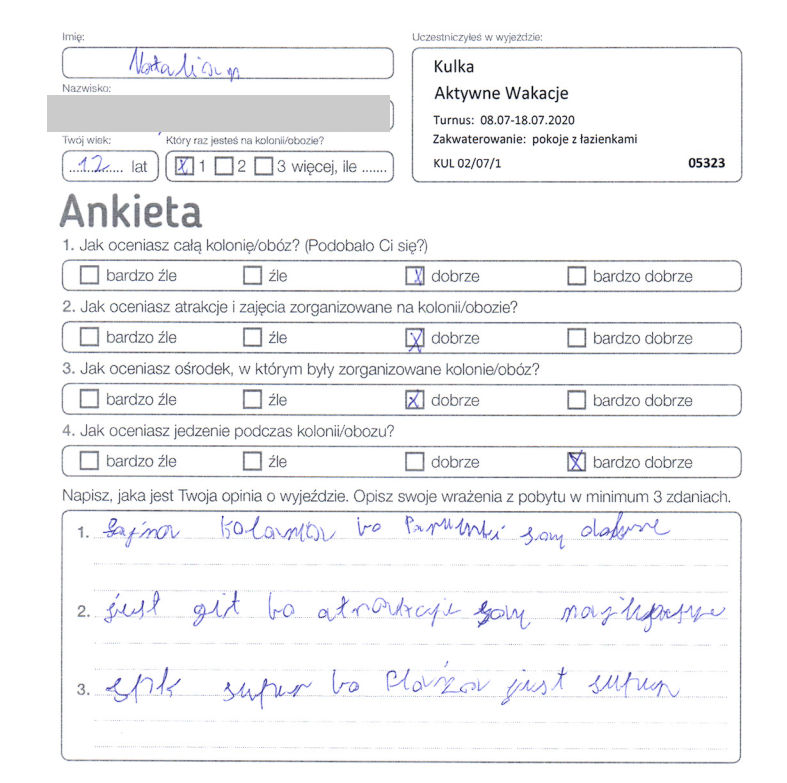 Imię:
Uczestniczyłeś w wyjeździe:
Kulka
Nazwisko:
Aktywne Wakacje
Turnus: 08.07-18.07.2020
Zakwaterowanie: pokoje z łazienkami
KUL 02/07/1 05323
Twój wiek: Który raz jesteś na kolonii/obozie?
...12..... lat X 1 2 3 więcej, ile .......
Ankieta
1. Jak oceniasz całą kolonię/obóz? (Podobało Ci się?)
bardzo źle źle X dobrze bardzo dobrze
2. Jak oceniasz atrakcje i zajęcia zorganizowane na kolonii/obozie?
bardzo źle źle X dobrze bardzo dobrze
3. Jak oceniasz ośrodek, w którym były zorganizowane kolonie/obóz?
bardzo źle źle X dobrze bardzo dobrze
4. Jak oceniasz jedzenie podczas kolonii/obozu?
bardzo źle źle dobrze X bardzo dobrze
Napisz, jaka jest Twoja opinia o wyjeździe. Opisz swoje wrażenia z pobytu w minimum 3 zdaniach.
1. fajna bo są dobre
2. jest git bo atrakcje są
3. super bo Plaża jest super